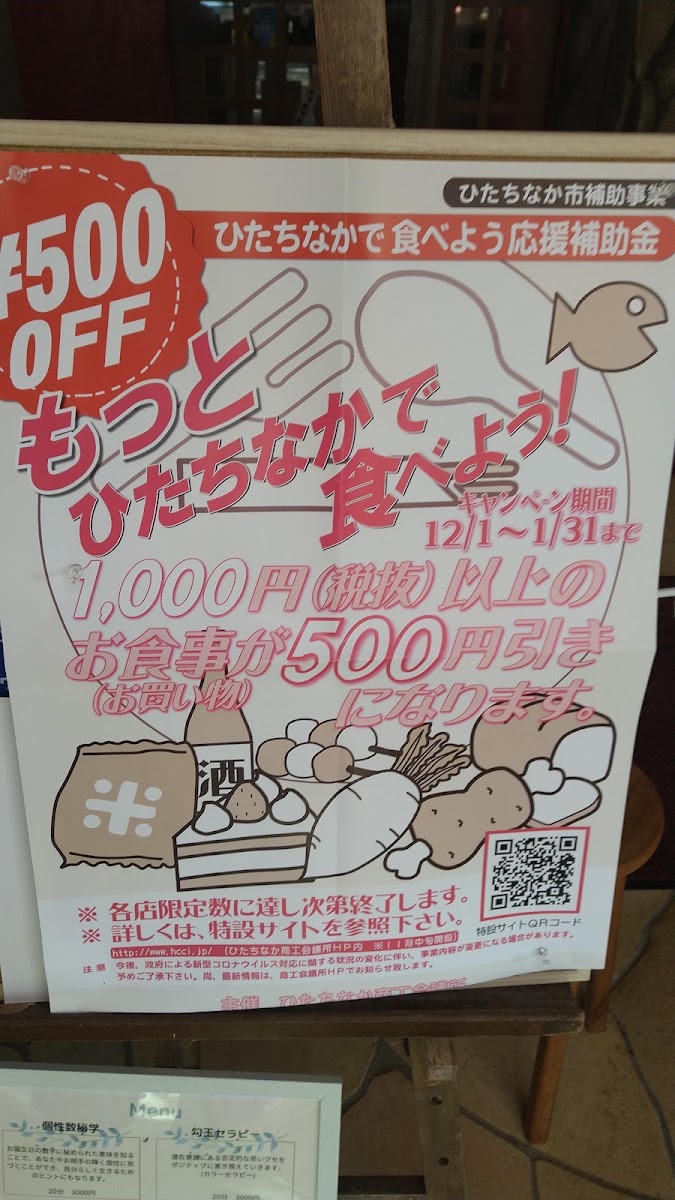 ひたちなか市補助事業
ひたちなかで食べよう応援補助金
¥500
OFF
もっと
ひたちなかで
食べよう!
キャンペーン期間
12/1～1/31まで
1,000円(税抜)以上の
お食事が500円引き
(お買い物)になります。
米
酒
※ 各店限定数に達し次第終了します。
※ 詳しくは、特設サイトを参照下さい。
特設サイトQRコード
http://www.hcci.jp/ (ひたちなか商工会議所HP内 ※11月中旬開設)
注意 今後、政府による新型コロナウイルス対応に関する状況の変化に伴い、事業内容が変更になる場合があります。
予めご了承下さい。尚、最新情報は、商工会議所HPでお知らせ致します。
主催 ひたちなか商工会議所
Menu
個性数秘学
お誕生日の数字に秘めれた意味を知る
ことで、あなたやお相手の輝く個性に気
づくことができ、自分らしく生きるため
のヒントにもなります。
20分 3000円
勾玉セラピー
潜在意識にある否定的な思いグセを
ポジティブに書き換えていきます。
(カラーセラピー)
20分 3000円